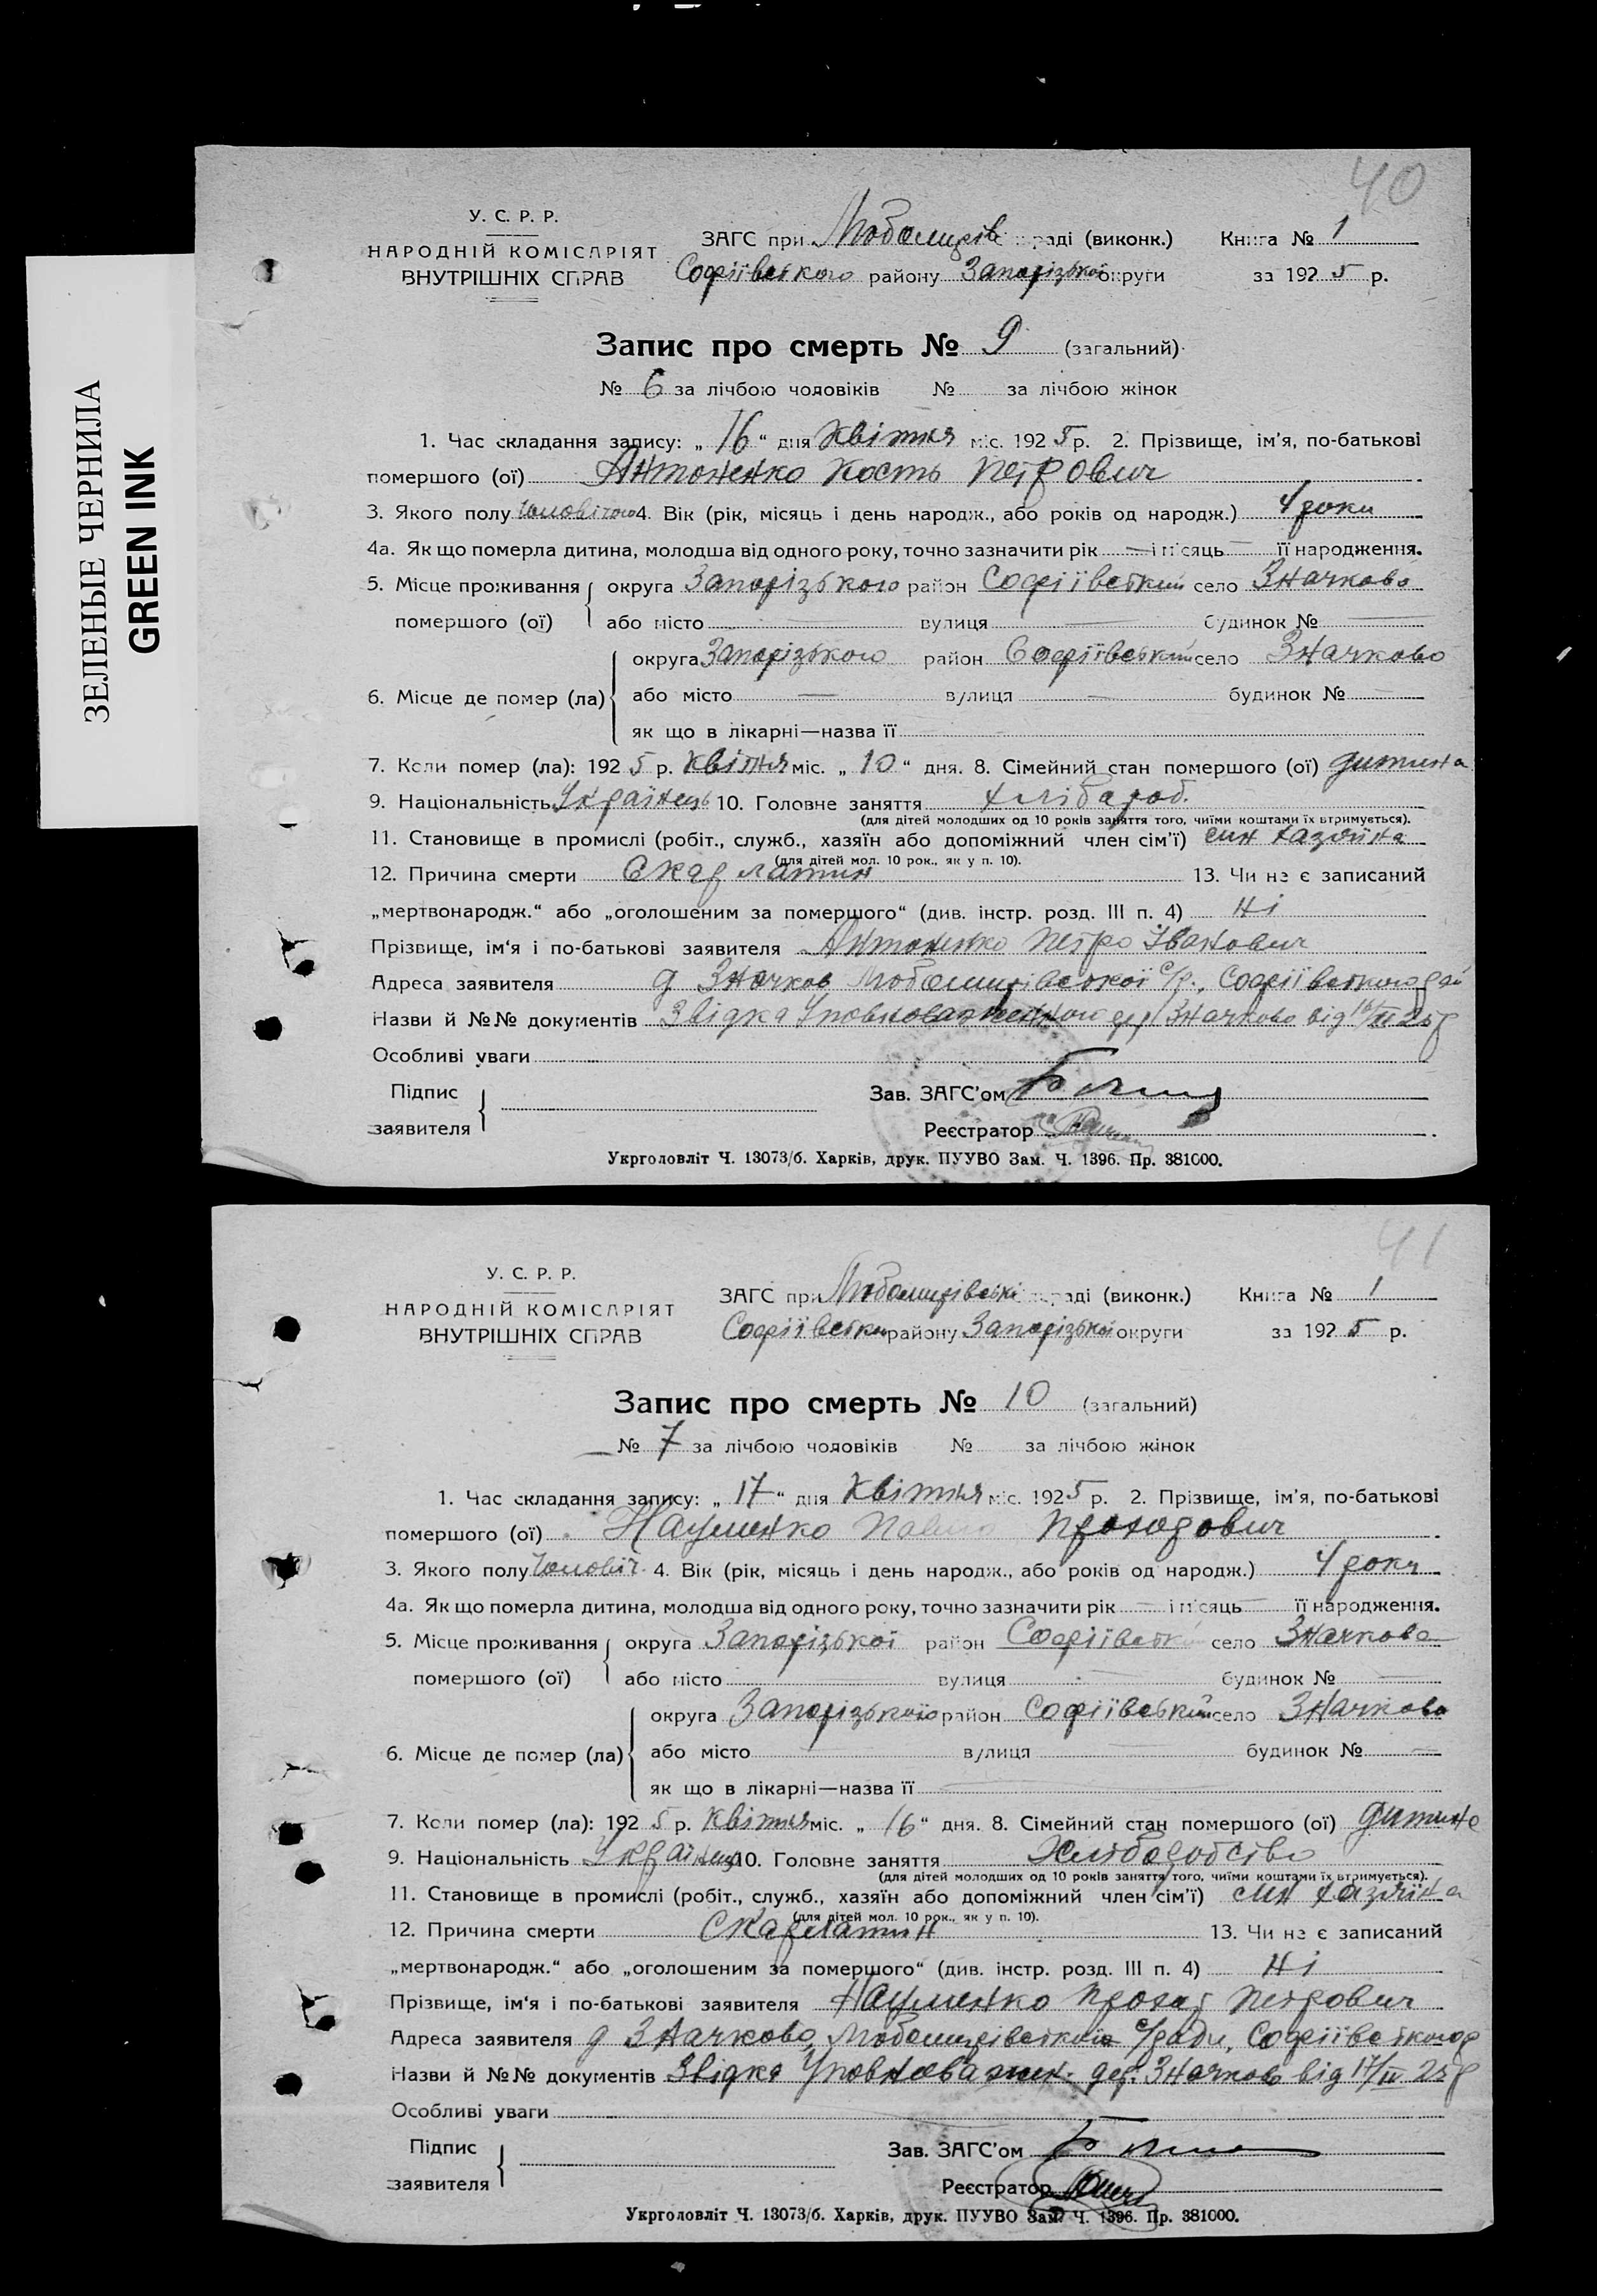 ЗЕЛЕНЫЕ ЧЕРНИЛА
GREEN INK
40
У. С. Р. Р.
НАРОДНІЙ КОМІСАРІЯТ
ВНУТРІШНІХ СПРАВ
ЗАГС при Любомирів раді (виконк.) Книга № 1
Софіївського району Запорізької округи за 1925 р.
Запис про смерть № 9 (загальний)
№ 6 за лічбою чоловіків № за лічбою жінок
1. Час складання запису: „16“ дня Квітня міс. 1925 р. 2. Прізвище, ім’я, по-батькові
помершого (ої) Антоненко Кость Петрович
3. Якого полу чоловічого 4. Вік (рік, місяць і день народж., або років од народж.) 4 роки
4а. Як що померла дитина, молодша від одного року, точно зазначити рік — і місяць — її народження.
5. Місце проживання помершого (ої) округа Запорізького район Софіївський село Значково
або місто — вулиця — будинок № —
6. Місце де помер (ла) округа Запорізького район Софіївський село Значково
або місто — вулиця — будинок № —
як що в лікарні—назва її
7. Коли помер (ла): 1925 р. Квітня міс. „10“ дня. 8. Сімейний стан помершого (ої) дитина
9. Національність Українець 10. Головне заняття хлібороб.
(для дітей молодших од 10 років заняття того, чиїми коштами їх втримується).
11. Становище в промислі (робіт., служб., хазяїн або допоміжний член сім’ї) син хазяїна
(для дітей мол. 10 рок., як у п. 10).
12. Причина смерти Скарлатин 13. Чи не є записаний
„мертвонародж.“ або „оголошеним за помершого“ (див. інстр. розд. III п. 4) Ні
Прізвище, ім‘я і по-батькові заявителя Антоненко Петро Іванович
Адреса заявителя д Значков Любомирівської с/р., Софіївського рай
Назви й №№ документів Звідка Уповноваженного дер Значково від 16/IV 25 р
Особливі уваги
Підпис заявителя
Зав. ЗАГС’ом
Реєстратор
Укрголовліт Ч. 13073/б. Харків, друк. ПУУВО Зам. Ч. 1396. Пр. 381000.
41
У. С. Р. Р.
НАРОДНІЙ КОМІСАРІЯТ
ВНУТРІШНІХ СПРАВ
ЗАГС при Любомирівські раді (виконк.) Книга № 1
Софіївськ району Запорізької округи за 1925 р.
Запис про смерть № 10 (загальний)
№ 7 за лічбою чоловіків № за лічбою жінок
1. Час складання запису: „17“ дня Квітня міс. 1925 р. 2. Прізвище, ім’я, по-батькові
помершого (ої) Науменко Павло Прохорович
3. Якого полу чоловіч. 4. Вік (рік, місяць і день народж., або років од народж.) 4 роки
4а. Як що померла дитина, молодша від одного року, точно зазначити рік — і місяць — її народження.
5. Місце проживання помершого (ої) округа Запорізької район Софіївськ село Значково
або місто — вулиця — будинок № —
6. Місце де помер (ла) округа Запорізького район Софіївський село Значково
або місто — вулиця — будинок № —
як що в лікарні—назва її
7. Коли помер (ла): 1925 р. Квітня міс. „16“ дня. 8. Сімейний стан помершого (ої) дитина
9. Національність Українец 10. Головне заняття Хліборобство
(для дітей молодших од 10 років заняття того, чиїми коштами їх втримується).
11. Становище в промислі (робіт., служб., хазяїн або допоміжний член сім’ї) син хазяїна
(для дітей мол. 10 рок., як у п. 10).
12. Причина смерти Скарлатин 13. Чи не є записаний
„мертвонародж.“ або „оголошеним за помершого“ (див. інстр. розд. III п. 4) Ні
Прізвище, ім‘я і по-батькові заявителя Науменко Прохор Петрович
Адреса заявителя д Значково, Любомирівської с/ради, Софіївського р
Назви й №№ документів Звідка Уповноважен. дер. Значково від 17/IV 25 р
Особливі уваги
Підпис заявителя
Зав. ЗАГС’ом
Реєстратор
Укрголовліт Ч. 13073/б. Харків, друк. ПУУВО Зам. Ч. 1396. Пр. 381000.